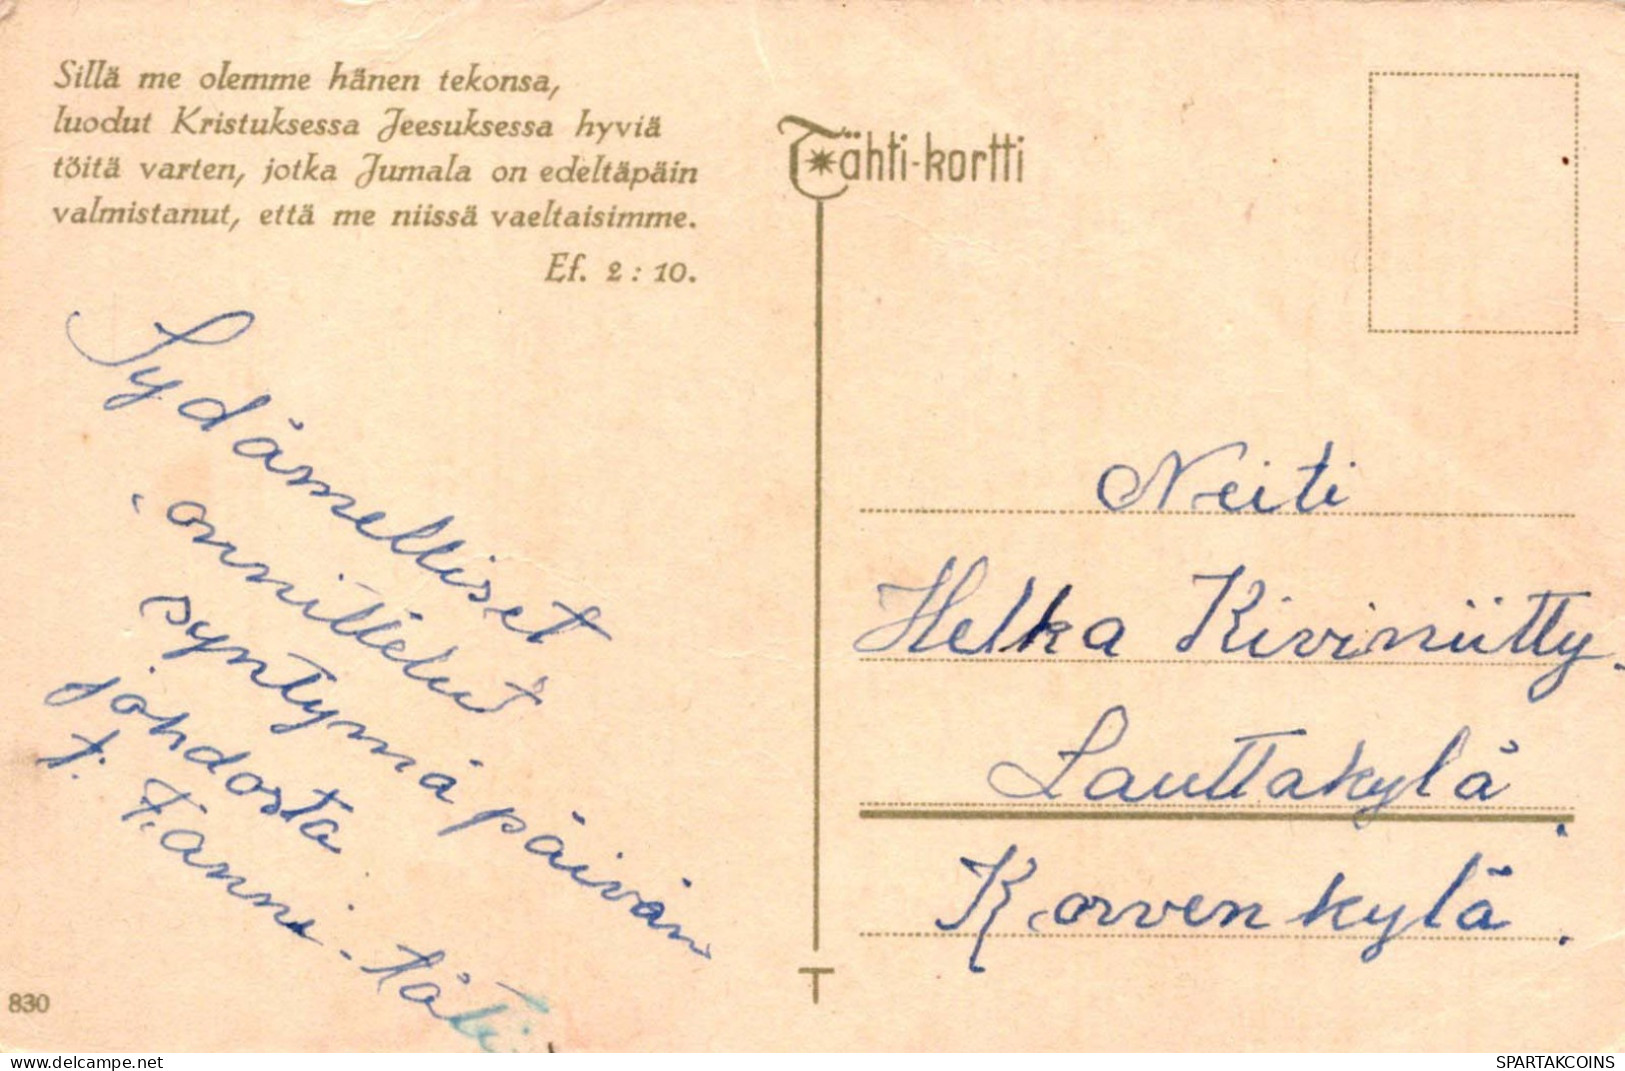 Sillä me olemme hänen tekonsa,
luodut Kristuksessa Jeesuksessa hyviä
töitä varten, jotka Jumala on edeltäpäin
valmistanut, että me niissä vaeltaisimme.
Ef. 2 : 10.
Tähti-kortti
Sydämelliset
onnittelut
syntymä päivän
johdosta
t. Fanni-täti
Neiti
Helka Kiviniitty.
Lauttakylä.
Korvenkylä.
T
830
delcampe.net
SPARTAKCOINS